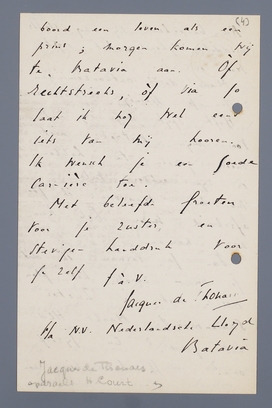 (4)
boord een leven als een
prins; morgen komen wij
te Batavia aan. Of
rechtstreeks, òf via Jo
laat ik nog wel eens
iets van mij hooren.
Ik wensch je een goede
carrière toe.
Met beleefde groeten
voor je zuster en
stevigen handdruk voor
je zelf t.à.v.
Jacques de
p/a N.V. Nederlandsche Lloyd
Batavia
Jacques de